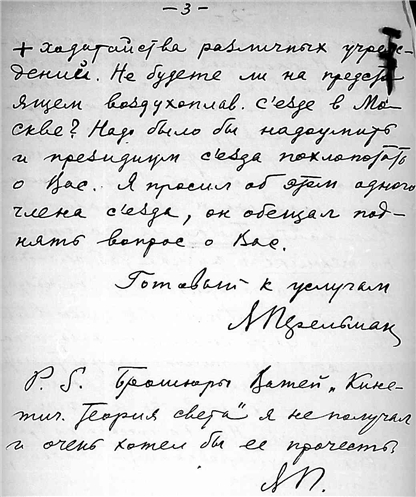 – 3 –
+ ходатайства различных учреж-
дений. Не будете ли на предсто
ящем воздухоплав. с'езде в Мо-
скве? Надо было бы надоумить
и президиум с'езда похлопотать
о Вас. Я просил об этом одного
члена с'езда, он обещал под-
нять вопрос о Вас.
Готовый к услугам
ЯПерельман
P. S. Брошюры Вашей „Кине-
тич. теория света" я не получал
и очень хотел бы ее прочесть.
ЯП.